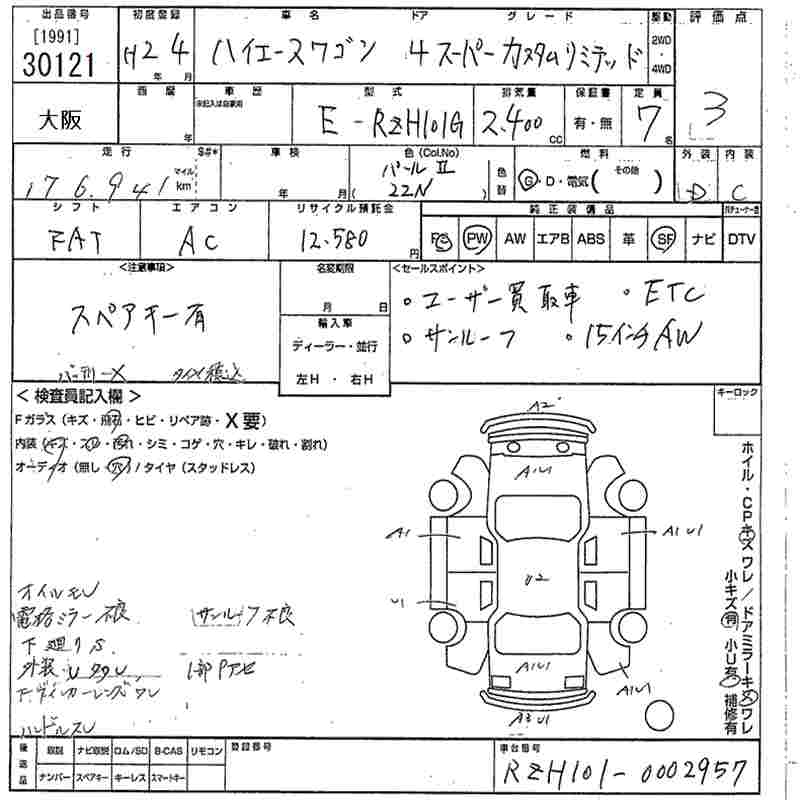 出品番号 初度登録 車名 ドア グレード 駆動 評価点
[1991] 30121 H2年4月 ハイエースワゴン 4 スーパーカスタムリミテッド 2WD・4WD 3
大阪 西暦 年 車歴 未記入は自家用 型式 E-RZH101G 排気量 2.400cc 保証書 有・無 定員 7名
走行 $#* 車検 色(Col.No) 燃料 外装 内装
176.941 マイル km 年 月 パールⅡ (22N) 色替 Ⓖ・D・電気(その他) D C
シフト エアコン リサイクル預託金 純正装備品
FAT AC 12.580円 PS PW AW エアB ABS 革 SR ナビ DTV
<注意事項> 名変期限 <セールスポイント>
スペアキー有 月 日 ・ユーザー買取車 ・ETC
輸入車 ・サンルーフ ・15インチAW
ディーラー・並行
バッテリーX タイヤ積込 左H・右H
<検査員記入欄> キーロック
Fガラス(キズ・飛石・ヒビ・リペア跡・X要)
内装(キズ・スレ・汚れ・シミ・コゲ・穴・キレ・破れ・割れ)
オーディオ(無し・穴)/タイヤ(スタッドレス)
A2
A1U1
A1 A1U1
U2
U1
A1U1 A1U1
A3U1
ホイル・CPキズワレ/ドアミラーキズワレ
小キズ有 小U有 補修有
オイルモレ
電格ミラー不良 サンルーフ不良
下廻りS
外装 1部Pアセ
ハンドルスレ
後送品 取説 ナビ取説 ロム/SD B-CAS リモコン 登録番号 車台番号
ナンバー スペアキー キーレス スマートキー RZH101-0002957